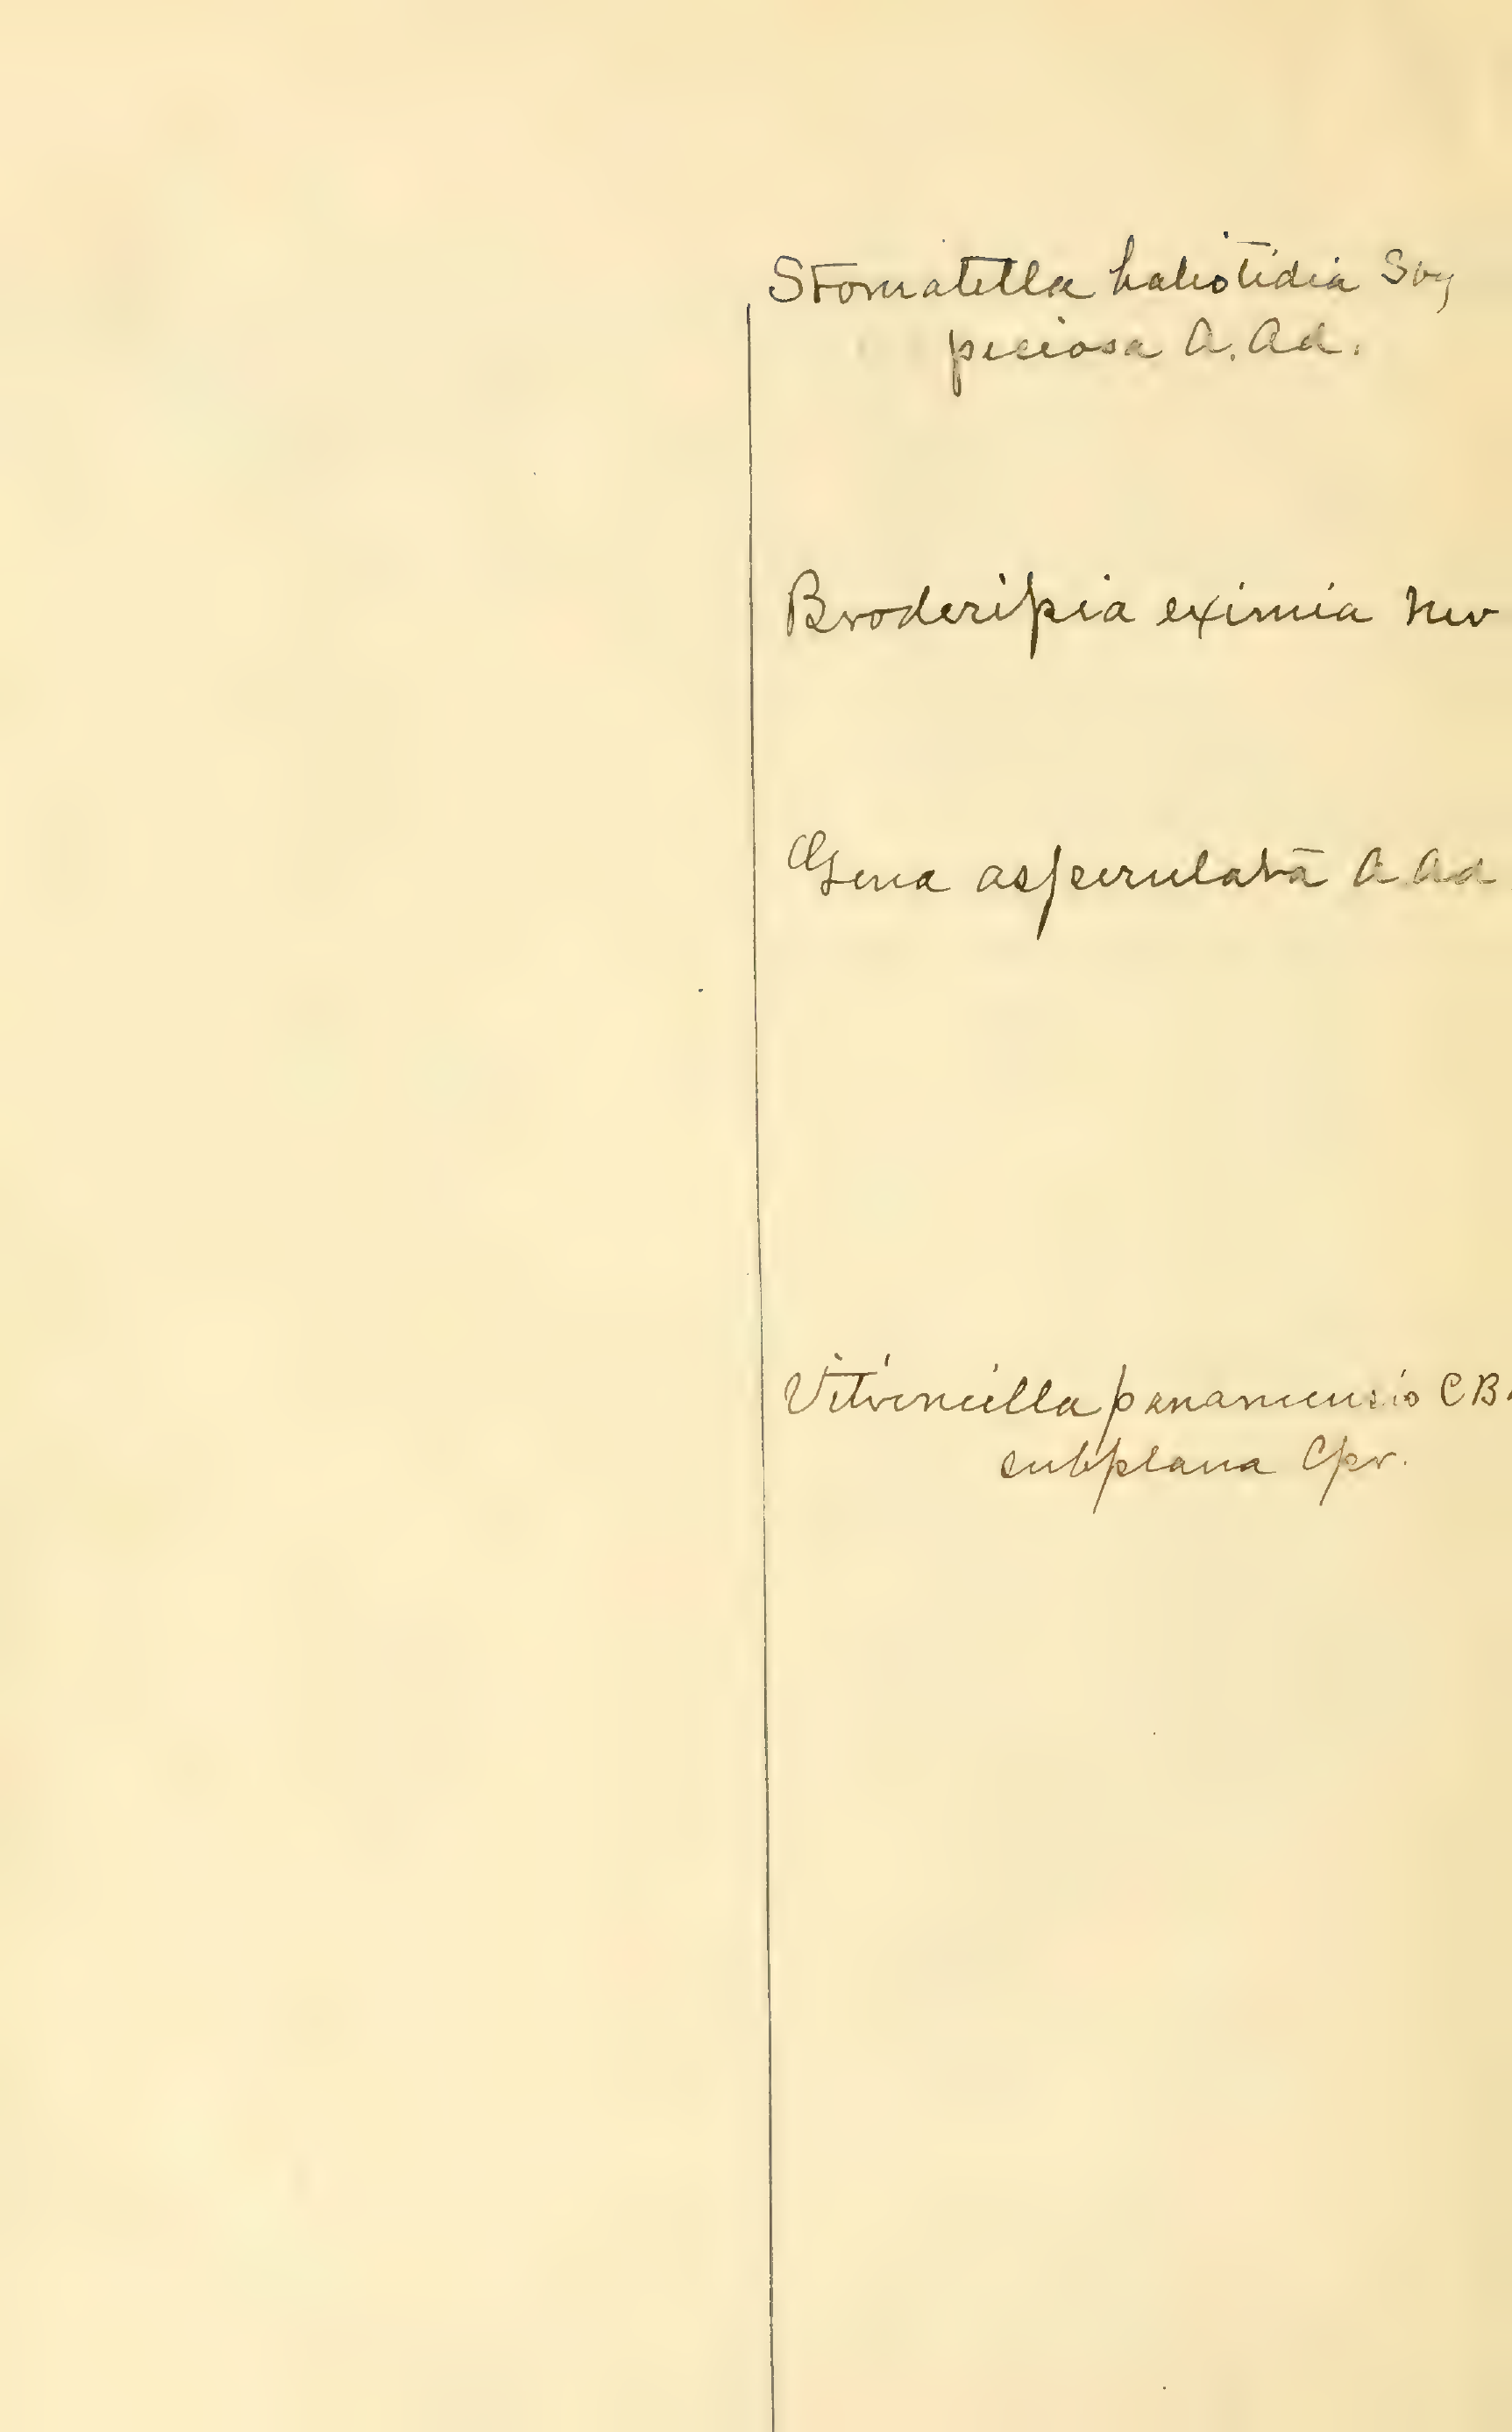 Stomatella haliotidia Soy
peciosa A. Ad.
Broderipia eximia Nev
Gena asperulata A Ad
Vitrinella panamensis C B.
subplana Cpr.